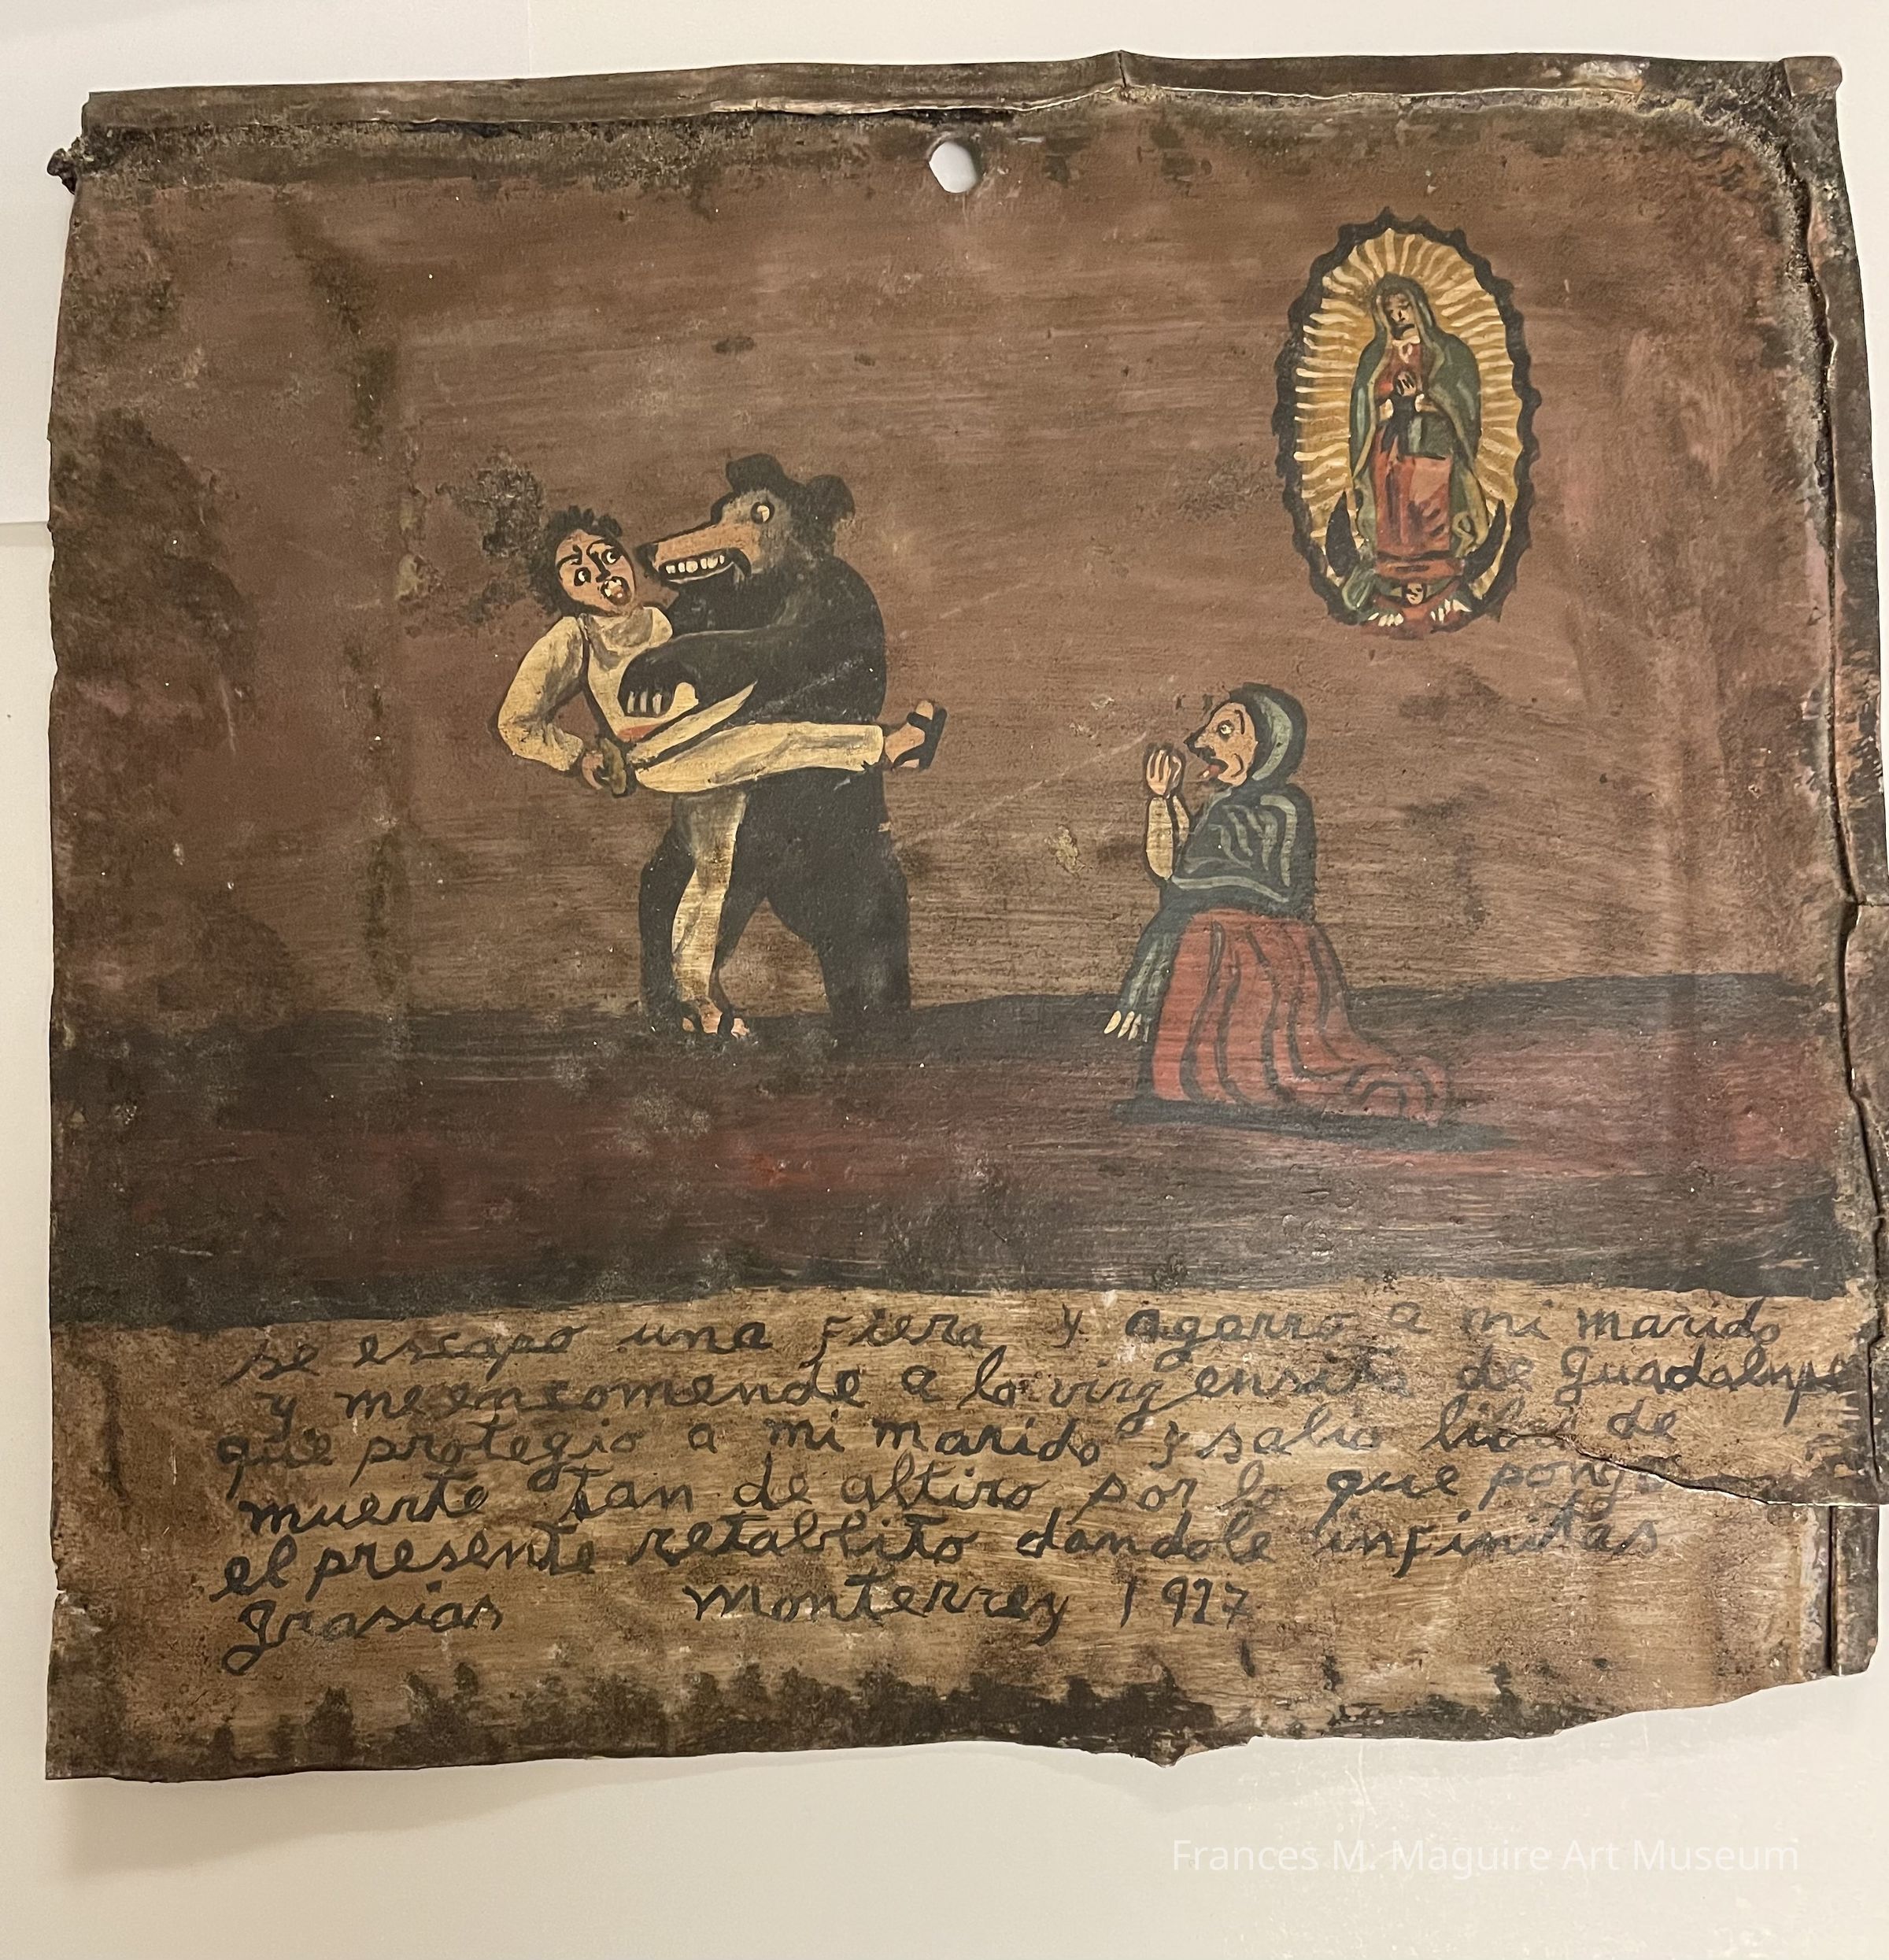 se escapo una fiera y agarro a mi marido
y me encomende a la virgensita de guadalupe
que protegio a mi marido y salio libre de
muerte tan de altiro por lo que pongo
el presente retablito dandole infinitas
grasias Monterrey 1927
Frances M. Maguire Art Museum